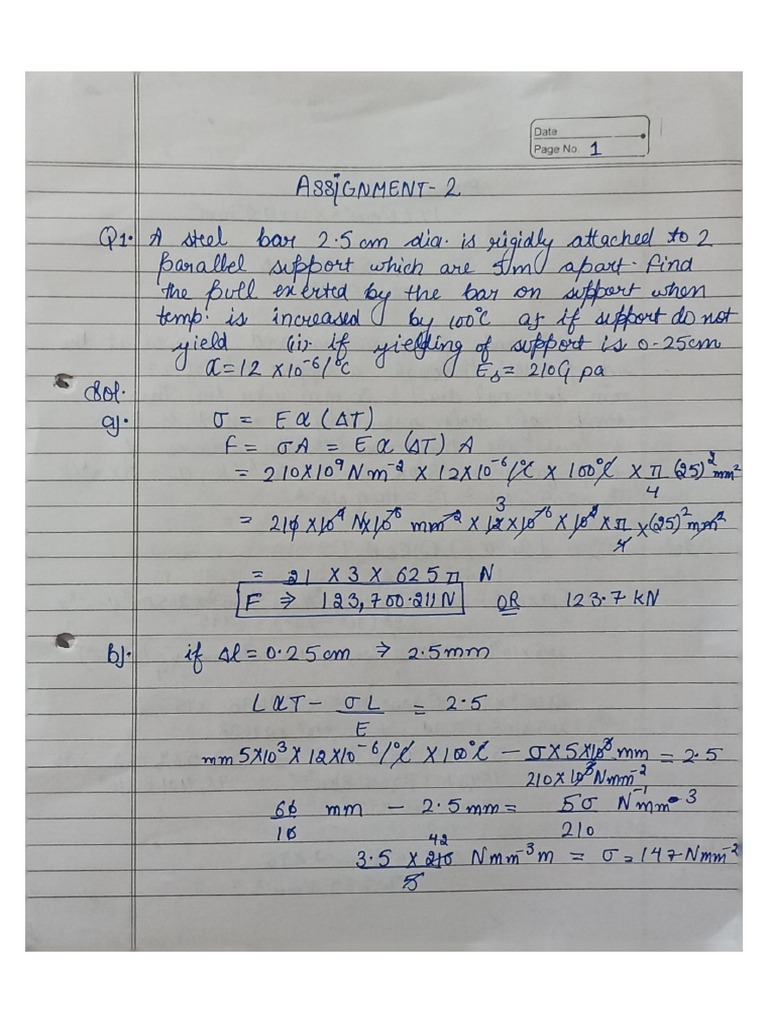 Date
Page No. 1
ASSIGNMENT-2
Q1. A steel bar 2.5 cm dia. is rigidly attached to 2
parallel support which are 5m apart. Find
the pull exerted by the bar on support when
temp. is increased by 100°C a) if support do not
yield (ii). if yielding of support is 0.25cm
α = 12 × 10⁻⁶/°C Es = 210G pa
Sol.
a). σ = Eα(ΔT)
F = σA = Eα(ΔT) A
= 210×10⁹ Nm⁻² × 12×10⁻⁶/°C × 100°C × π/4 (25)² mm²
= 210 × 10⁹ N×10⁻⁶ mm⁻² × 12 3 × 10⁻⁶ × 10² × π/4 × (25)² mm²
= 21 × 3 × 625π N
F ⇒ 123,700.211N OR 123.7 kN
b). if Δl = 0.25cm ⇒ 2.5mm
LαT - σL/E = 2.5
mm 5×10³ × 12×10⁻⁶/°C × 100°C - σ×5×10³ mm / 210×10³ Nmm⁻² = 2.5
60/10 mm - 2.5mm = 5σ/210 N⁻¹mm³
3.5 × 210 42 / 5 Nmm⁻³m = σ = 147 Nmm⁻²